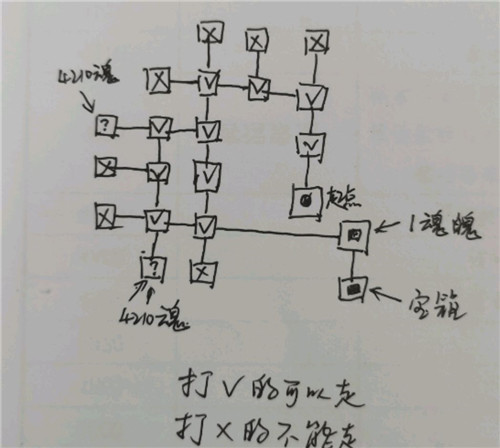 4210魂
?
起点
1魂魄
宝箱
?
4210魂
打V的可以走
打X的不能走